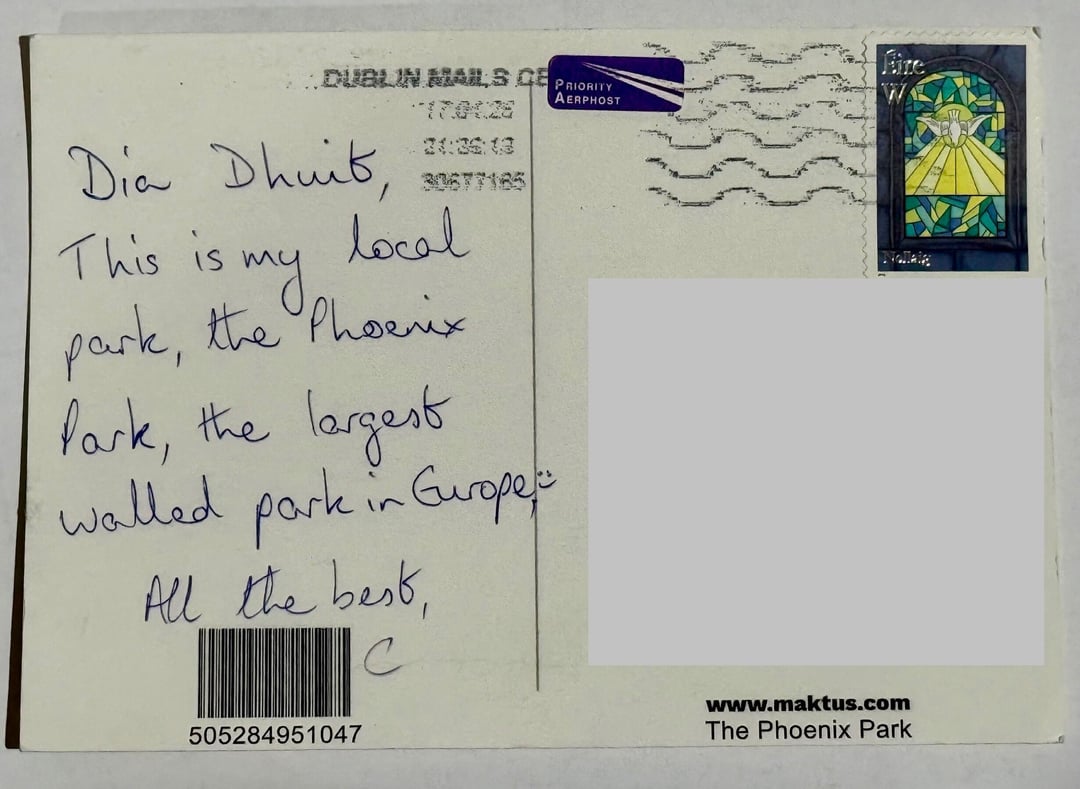 DUBLIN MAILS CE
PRIORITY
AERPHOST
21:36:13
30677185
Éire
W
Nollaig
Dia Dhuit,
This is my local
park, the Phoenix
Park, the largest
walled park in Europe, :)
All the best,
C
505284951047
www.maktus.com
The Phoenix Park